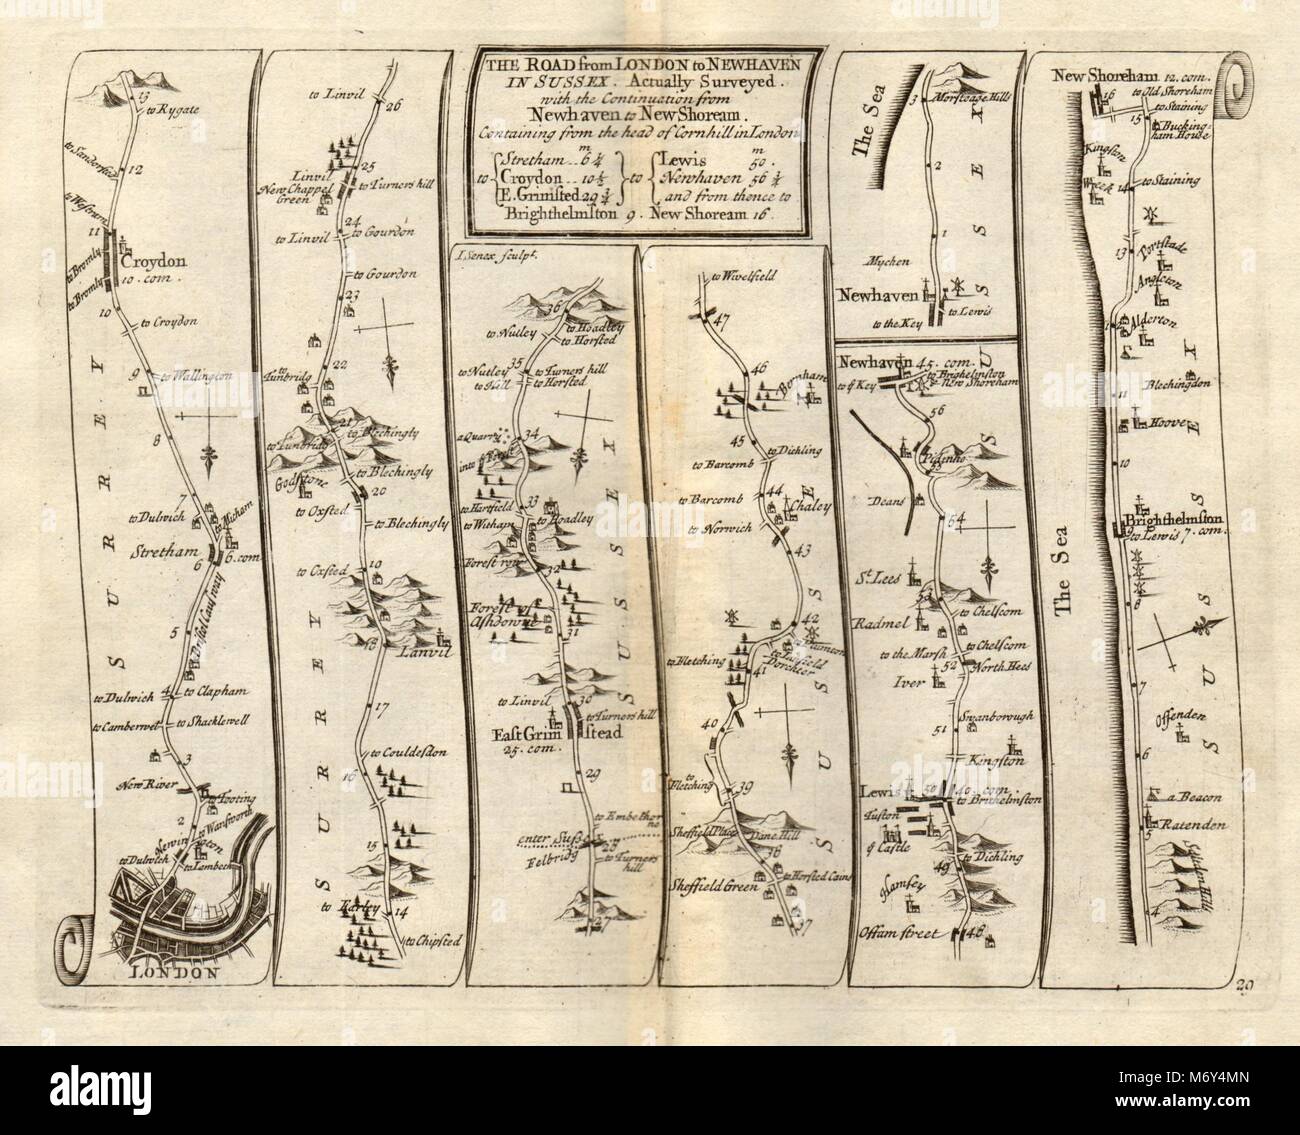 THE ROAD from LONDON to NEWHAVEN
IN SUSSEX. Actually Surveyed.
with the Continuation from
Newhaven to New Shoream.
Containing from the head of Cornhill in London
m m
to Stretham 6¼ to Lewis 50.
Croydon 10½ Newhaven 56¾
E. Grinsted 29¾ and from thence to
Brighthelmston 9. New Shoream 16.
13
to Rygate
12
to Westram
11
Croydon
10. com.
to Bromly
to Bromly
10
to Croydon
9
to Wallington
8
7
to Dulwich
to Micham
Stretham
6
6. com
Bristol Causway
5
to Dulwich
4
to Clapham
to Camberwel
to Shacklewell
3
New River
to Tooting
2
Newington
to Wansworth
to Dulwich
to Lambeth
LONDON
SURREY
to Linvil
26
25
Linvil
New Chappel
Green
to Turners hill
24
to Linvil
to Gourdon
to Gourdon
23
22
to Tunbridg
21
to Blechingly
to Tunbridg
to Blechingly
Godstone
20
to Oxsted
to Blechingly
to Oxsted
19
18
Lanvil
17
to Couldesdon
16
15
to Farley
14
to Chipsted
SURREY
I. Senex sculpt.
36
to Nutley
to Hoadley
to Horsted
35
to Nutley
to Turners hill
to Mill
to Horsted
a Quarry
34
33
to Hartfield
to Hoadley
to Witham
Forest row
32
Forest of
Ashdowne
31
30
to Linvil
to Turners hill
East Grim stead
25. com.
29
to Embethorne
enter Sussex
28
Felbridg
to Turners
hill
27
SUSSEX
to Wivelfield
47
46
Bernham
45
to Dichling
to Barcomb
to Barcomb
44
Chaley
to Norwich
43
42
to Fletching
41
40
to
Fletching
39
Sheffield Place
Dane Hill
38
Sheffield Green
to Horsted Cains
37
SUSSEX
The Sea
3
Morstoage Hills
2
1
Mychen
Newhaven
to the Key
to Lewis
SUSSEX
Newhaven 45. com.
to Brighelmston
to ye Key
New Shoreham
56
Pidinho
55
Deans
54
St. Lees
53
to Chelscom
Radmel
to Chelscom
to the Marsh
52
North Hees
Iver
Swanborough
51
Kingston
Lewis
50
40. com.
to Brithelmston
Fuston
ye Castle
49
to Dichling
Hamsey
Offam street
48
SUS
New Shoreham 12. com.
16
to Old Shoreham
to Staining
15
Bucking-
ham House
Kingston
Wreek
14
to Staining
13
Portslade
Angleton
12
Alderton
Blechingdon
11
Hoove
10
Brighthelmston
to Lewis 7. com.
The Sea
8
7
Offenden
6
a Beacon
Ratenden
5
4
SUSSEX
29
alamy
alamy
Image ID: M6Y4MN
www.alamy.com